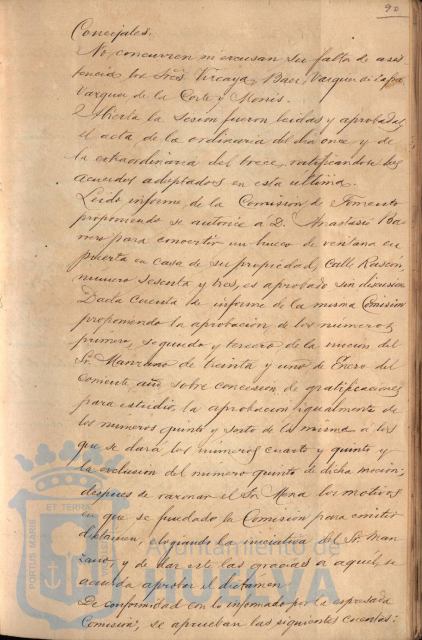 90
Concejales.
No concurren ni excusan su falta de asis-
tencia los Sres. Vizcaya, Baer, Vazquez de la
Vazquez de la Corte y Monís.
Abierta la sesión fueron leidas y aprobadas
el acta de la ordinaria del dia once y de
la extraordinaria del trece, ratificandose los
acuerdos adoptados en esta última.
Leido informe de la Comision de Fomento
proponiendo se autorice a D. Anastasio Ba-
rrero para convertir un hueco de ventana en
puerta en casa de su propiedad, Calle Rascón,
numero sesenta y tres, es aprobado sin discusion.
Dada cuenta de informe de la misma Comision
proponiendo la aprobacion de los numeros
primero, segundo y tercero de la mocion del
Sr. Manzano de treinta y uno de Enero del
corriente año sobre concesion de gratificaciones
para estudio, la aprobacion igualmente de
los numeros quinto y sexto de la misma a los
que se dará los numeros cuarto y quinto y
la exclusion del numero quinto de dicha mocion;
despues de razonar el Sr. Mena los motivos
en que se fundado la Comisión para emitir
dictamen, elogiando la iniciativa del Sr. Man-
zano, y de dar este las gracias a aquel, se
acuerda aprobar el dictamen.
De conformidad con lo informado por la expresada
Comisión, se aprueban las siguientes cuentas:
PORTUS MARIS ET TERRAE
Ayuntamiento de
HUELVA